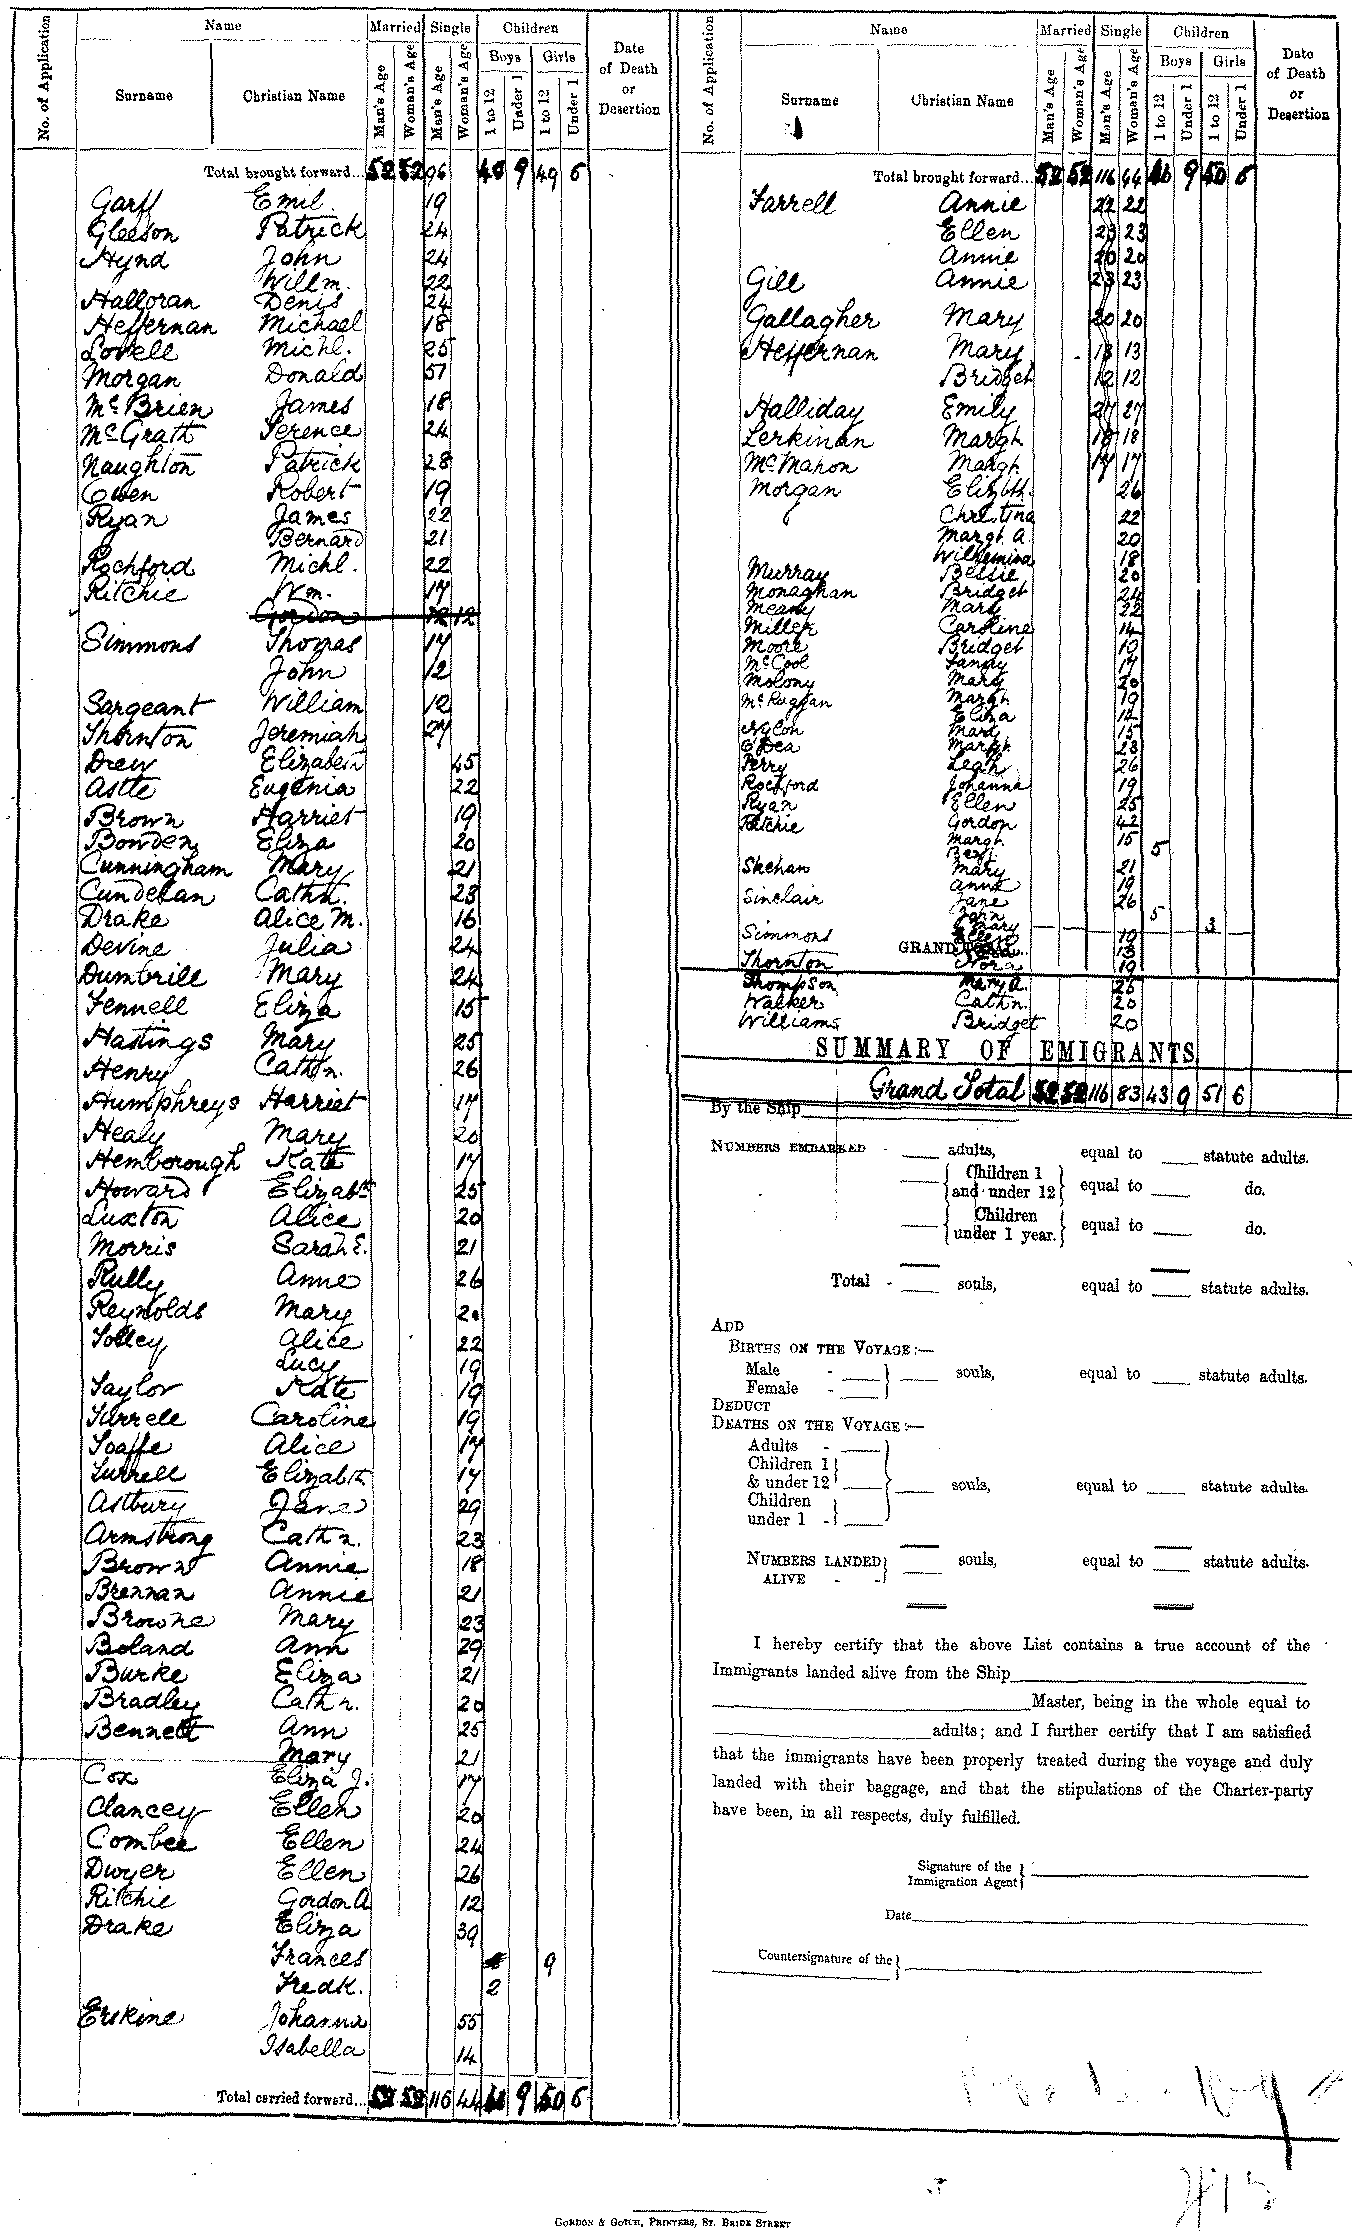 No. of Application
Name
Married
Single
Children
Date of Death or Desertion
Surname
Christian Name
Man's Age
Woman's Age
Man's Age
Woman's Age
Boys
Girls
1 to 12
Under 1
1 to 12
Under 1
Total brought forward... 52 52 96 9 49 6
Garff Emil. 19
Gleeson Patrick 24
Hynd John 24
Willm. 22
Halloran Denis 24
Heffernan Michael 18
Lovell Michl. 25
Morgan Donald 57
McBrien James 18
McGrath Terence 24
Naughton Patrick 28
Owen Robert 19
Ryan James 22
Bernard 21
Rochford Michl. 22
Ritchie Wm. 17
Gordon 12 12
Simmons Thomas 17
John 12
Sargeant William 12
Thornton Jeremiah 27
Drew Elizabeth 45
Astle Eugenia 22
Brown Harriet 19
Bowden Eliza 20
Cunningham Mary 21
Cundelan Cathn. 23
Drake Alice M. 16
Devine Julia 24
Dumbrill Mary 24
Fennell Eliza 15
Hastings Mary 25
Henry Cathn. 26
Humphreys Harriet 17
Healy Mary 20
Hemborough Kate 17
Howard Elizabth 25
Luxton Alice 20
Morris Sarah E. 21
Rully Anne 26
Reynolds Mary 20
Tolley Alice 22
Lucy 19
Taylor Kate 19
Turrele Caroline 19
Toaffe Alice 17
Turrell Elizabth. 17
Astbury Jane 29
Armstrong Cathn. 23
Brown Annie 18
Brennan Annie 21
Browne Mary 23
Boland Ann 29
Burke Eliza 21
Bradley Cathn. 20
Bennett Ann 25
Mary 21
Cox Eliza J. 17
Clancey Ellen 20
Combee Ellen 24
Dwyer Ellen 26
Ritchie Gordon A 12
Drake Eliza 39
Frances 9
Fredk. 2
Erskine Johanna 55
Isabella 14
Total carried forward... 52 52 116 44 9 50 6
No. of Application
Name
Married
Single
Children
Date of Death or Desertion
Surname
Christian Name
Man's Age
Woman's Age
Man's Age
Woman's Age
Boys
Girls
1 to 12
Under 1
1 to 12
Under 1
Total brought forward... 52 52 116 44 9 50 6
Farrell Annie 22 22
Ellen 23 23
Annie 20 20
Gill Annie 23 23
Gallagher Mary 20 20
Heffernan Mary 13 13
Bridget 12 12
Halliday Emily 27 27
Lerkinan Margt. 18 18
McMahon Margt. 17 17
Morgan Elizbth. 26
Christina 22
Margt. A. 20
Wilhemina 18
Murray Bessie 20
Monaghan Bridget 24
Meany Mary 22
Miller Caroline 14
Moore Bridget 19
McCool Fanny 17
Molony Mary 20
McRuggan Margt. 19
Eliza 14
Nylon Mary 15
O'Dea Margt. 23
Perry Leah 26
Rochford Johanna 19
Ryan Ellen 25
Ritchie Gordon 42
Margt. 15
5
Skehan Mary 21
Anne 19
Sinclair Jane 26
John 5
Mary 3
Simmons 19
GRAND TOTAL... 13
Thornton Nora 19
Thompson Mary A. 25
Walker Cathn. 20
Williams Bridget 20
SUMMARY OF EMIGRANTS
Grand Total 52 52 116 83 43 9 51 6
By the Ship
NUMBERS EMBARKED - adults, equal to statute adults.
Children 1 and under 12 equal to do.
Children under 1 year. equal to do.
Total - souls, equal to statute adults.
ADD
BIRTHS ON THE VOYAGE:—
Male -
Female -
souls, equal to statute adults.
DEDUCT
DEATHS ON THE VOYAGE:—
Adults -
Children 1
& under 12
souls, equal to statute adults.
Children
under 1 -
NUMBERS LANDED souls, equal to statute adults.
ALIVE - -
I hereby certify that the above List contains a true account of the
Immigrants landed alive from the Ship
Master, being in the whole equal to
adults; and I further certify that I am satisfied
that the immigrants have been properly treated during the voyage and duly
landed with their baggage, and that the stipulations of the Charter-party
have been, in all respects, duly fulfilled.
Signature of the
Immigration Agent
Date
Countersignature of the
GORDON & GOTCH, PRINTERS, ST. BRIDE STREET